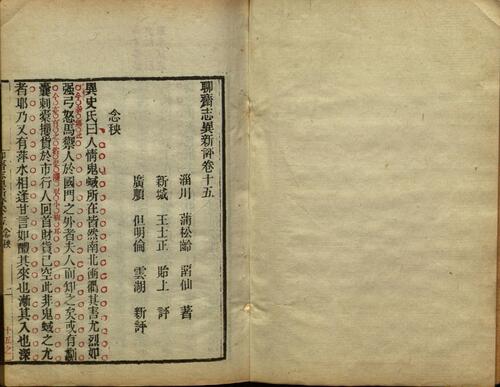 聊齋志異新評卷十五
淄川　蒲松齡　留仙　著
新城　王士正　貽上　評
廣順　但明倫　雲湖　新評
念秧
異史氏曰人情鬼蜮所在皆然南北衝衢其害尤烈如
强弓怒馬禦人於國門之外者夫人而知之矣或有劙
囊刺橐攫貨於市行人回首財貨已空此非鬼蜮之尤
者耶乃又有萍水相逢甘言如醴其來也漸其入也深